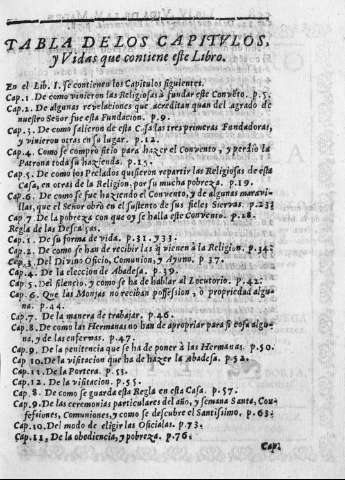 TABLA DE LOS CAPITVLOS,
y Vidas que contiene este Libro.
En el Lib. I. se contienen los Capitulos siguientes.
Cap. 1. De como vinieron las Religiosas à fundar este Convēto. p. 5.
Cap. 2. De algunas revelaciones que acreditan quan del agrado de
nuestro Señor fue esta Fundacion. p. 9.
Cap. 3. De como salieron de esta Casa las tres primeras Fundadoras,
y vinieron otras en su lugar. p. 12.
Cap. 4. Como se compro sitio para hazer el Convento, y perdio la
Patrona toda su hazienda. p. 15.
Cap. 5. De como los Prelados quisieron repartir las Religiosas de esta
Casa, en otras de la Religion, por su mucha pobreza. p. 19.
Cap. 6. De como se fue haziendo el Convento, y de algunas maravi-
llas, que el Señor obrò en el sustento de sus fieles Siervas. p. 23.
Cap 7 De la pobreza con que oy se halla este Convento. p. 28.
Regla de las Descalças.
Cap. 1. De su forma de vida. p. 31. y 33.
Cap. 2. De como se han de recibir las q̃ vienen à la Religion. p. 34.
Cap. 3. Del Divino Oficio, Comunion, y Ayuno. p. 37.
Cap. 4. De la eleccion de Abadesa. p. 39.
Cap. 5. Del silencio, y como se ha de hablar al Locutorio. p. 42.
Cap. 6. Que las Monjas no reciban possession, ò propriedad algu-
na. p. 44.
Cap. 7. De la manera de trabajar. p. 46.
Cap. 8. De como las Hermanas no han de apropriar para si cosa algu-
na, y de las enfermas. p. 47.
Cap. 9. De la penitencia que se ha de poner à las Hermanas. p. 50.
Cap 10. De la visitacion que ha de hazer la Abadesa. p. 52.
Cap. 11. De la Portera. p. 53.
Cap. 12. De la visitacion. p. 55.
Cap. 8. De como se guarda esta Regla en esta Casa. p. 57.
Cap. 9. De las ceremonias particulares del año, y semana Santa, Con-
fessiones, Comuniones, y como se descubre el Santissimo. p. 63.
Cap. 10. Del modo de eligir las Oficialas. p. 73.
Cap. 11, De la obediencia, y pobreza. p. 76.
Cap.